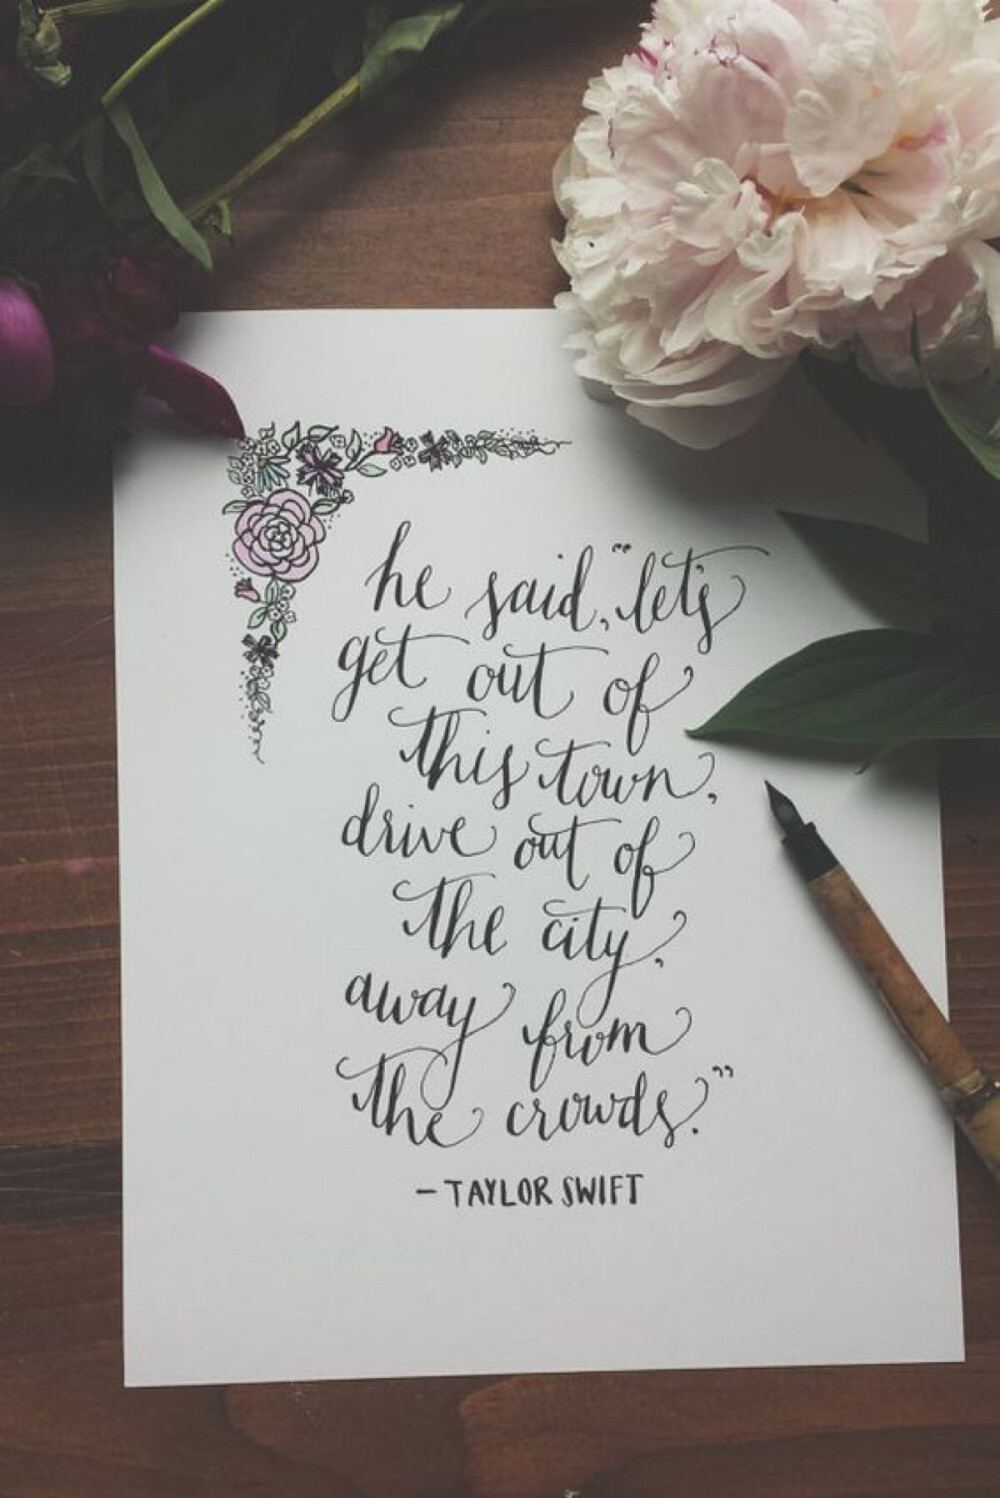 he said, "let's
get out of
this town,
drive out of
the city,
away from
the crowds."
- TAYLOR SWIFT